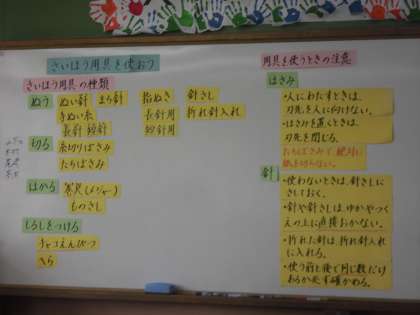 さいほう用具を使おう
さいほう用具の種類
ぬう
ぬい針 まち針
きぬい糸
長針 短針
指ぬき
長針用
短針用
針さし
折れ針入れ
切る
糸切りばさみ
たちばさみ
はかる
巻尺(メジャー)
ものさし
しるしをつける
チャコえんぴつ
へら
用具を使うときの注意
はさみ
・人にわたすときは、
刃先を人に向けない。
・はさみを置くときは、
刃先を閉じる。
たちばさみで絶対に
紙を切らない。
針
・使わないときは、針さしに
さしておく。
・針や針さしは、ゆかやつく
えの上に直接おかない。
・折れた針は、折れ針入れ
に入れる。
・使う前と後で同じ数だけ
あるか必ず確かめる。